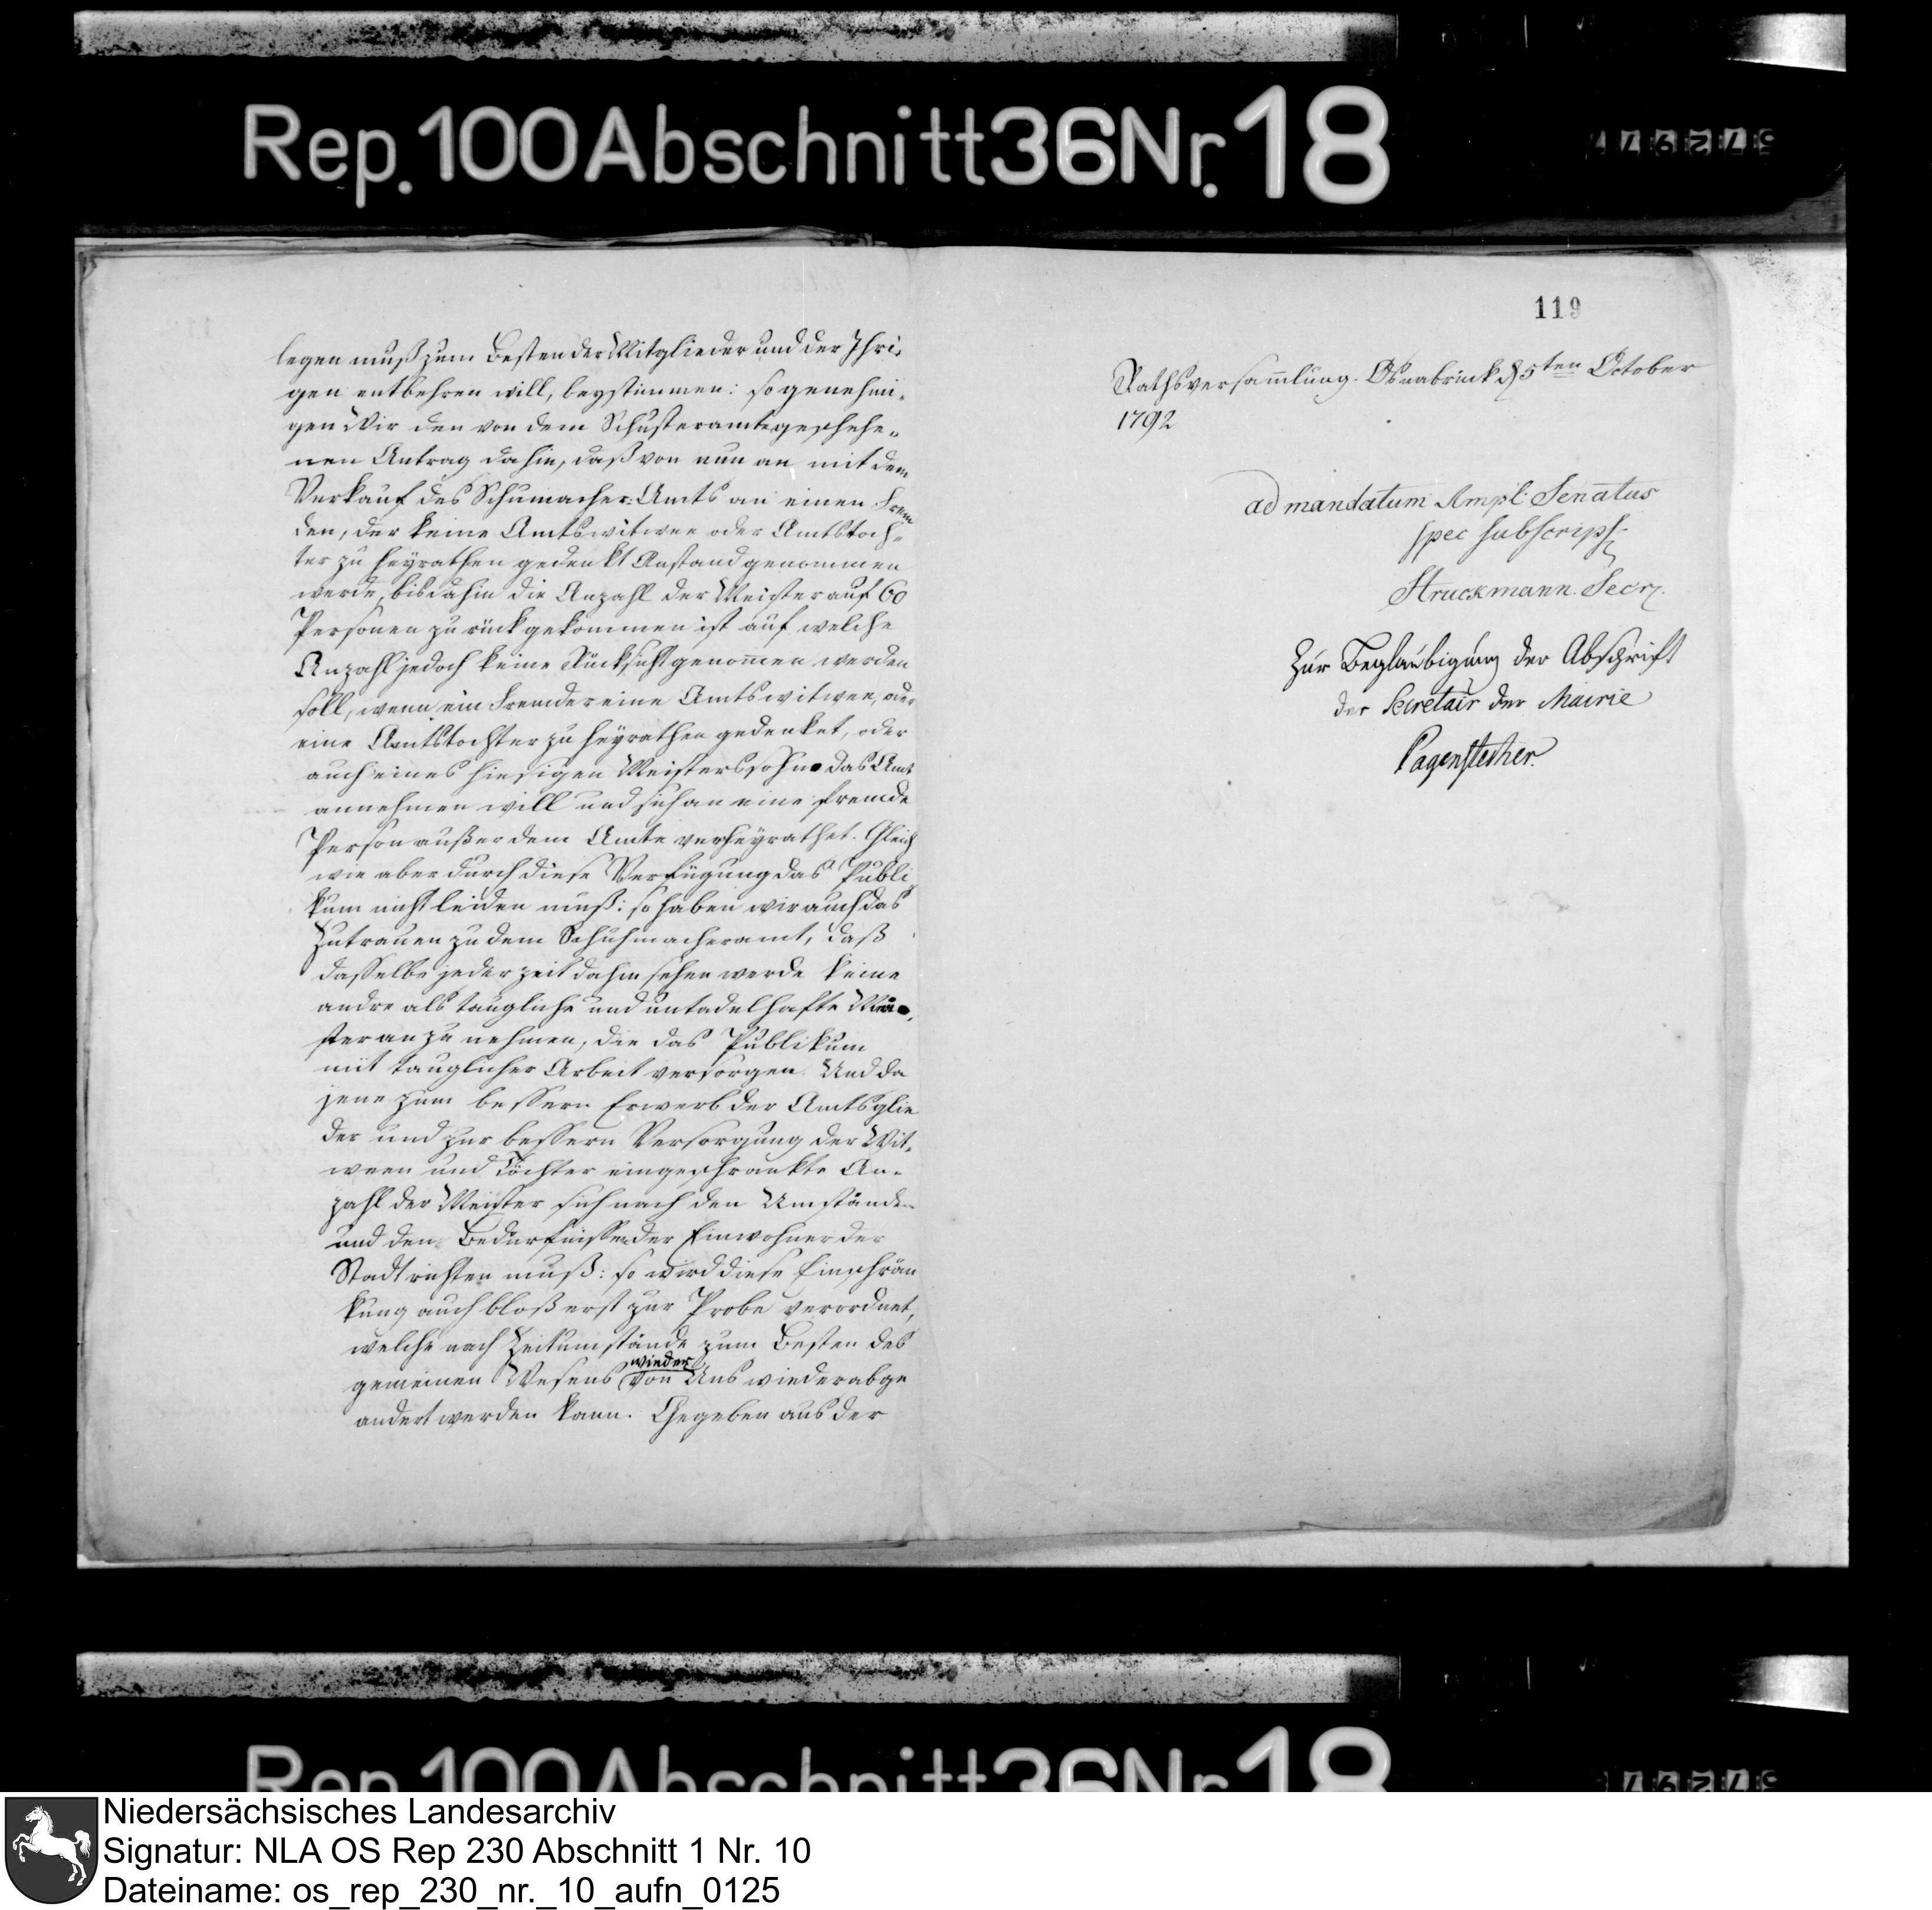 Rep. 100 Abschnitt 36 Nr. 18
legen muß zum Besten der Mitglieder und der Ihri-
gen entbehren will, beystimmen: so genehmi-
gen Wir den von dem Schusteramte geschehe-
nen Antrag dahin, daß von nun an mit dem
Verkauf des Schumacher-Amts an einen Frem
den, der keine Amtswitwee oder Amtstoch-
ter zu heyrathen gedenkt Anstand genommen
werde, bis dahin die Anzahl der Meister auf 60
Personen zurückgekommen ist auf welche
Anzahl jedoch keine Rücksicht genom̄en werden
soll, wenn ein Fremder eine Amtswitwee, oder
eine Amtstochter zu heyrathen gedenket, oder
auch eines hiesigen Meisterssohn das Amt
annehmen will und sich an eine fremde
Person außer dem Amte verheyrathet. Gleich
wie aber durch diese Verfügung das Publi
kum nicht leiden muß: so haben wir auch das
Zutrauen zu dem Schuhmacheramt, daß
dasselbe jederzeit dahin sehen werde keine
andre als taugliche und untadelhafte
ster anzunehmen, die das Publikum
mit tauglicher Arbeit versorgen. Und da
jene zum bessern Erwerb der Amtsglie
der und zur bessern Versorgung der Wit-
ween und Töchter eingeschrankte An-
zahl der Meister sich nach den Umständen
und den Bedürfnissen der Einwohner der
Stadt richten muß: so wird diese Einschrän
kung auch bloß erst zur Probe verordnet,
welche nach Zeitumstände zum Besten des
wieder
gemeinen Wesens von Uns wieder abge
andert werden kann. Gegeben aus der
119
Rathsversam̄lung. Osnabrück d 5ten October
1792
ad mandatum Ampl. Senatus
spec subscrips.
Struckmann. Secr.
Zur Beglaubigung der Abschrift
der Secretair der Mairie
Pagenstecher.
Rep. 100 Abschnitt 36 Nr. 18
Niedersächsisches Landesarchiv
Signatur: NLA OS Rep 230 Abschnitt 1 Nr. 10
Dateiname: os_rep_230_nr._10_aufn_0125